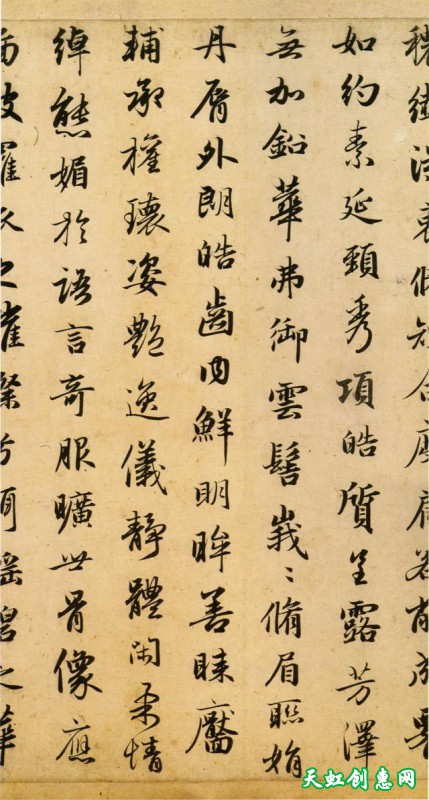 穠纖得衷脩短合度肩若削成腰
如約素延頸秀項皓質呈露芳澤
無加鉛華弗御雲髻峩〻脩眉聯娟
丹脣外朗皓齒内鮮明眸善睞靨
輔承權瓌姿艷逸儀靜體閑柔情
綽態媚於語言奇服曠世骨像應
披羅衣之璀粲兮珥瑤碧之華
天虹创惠网